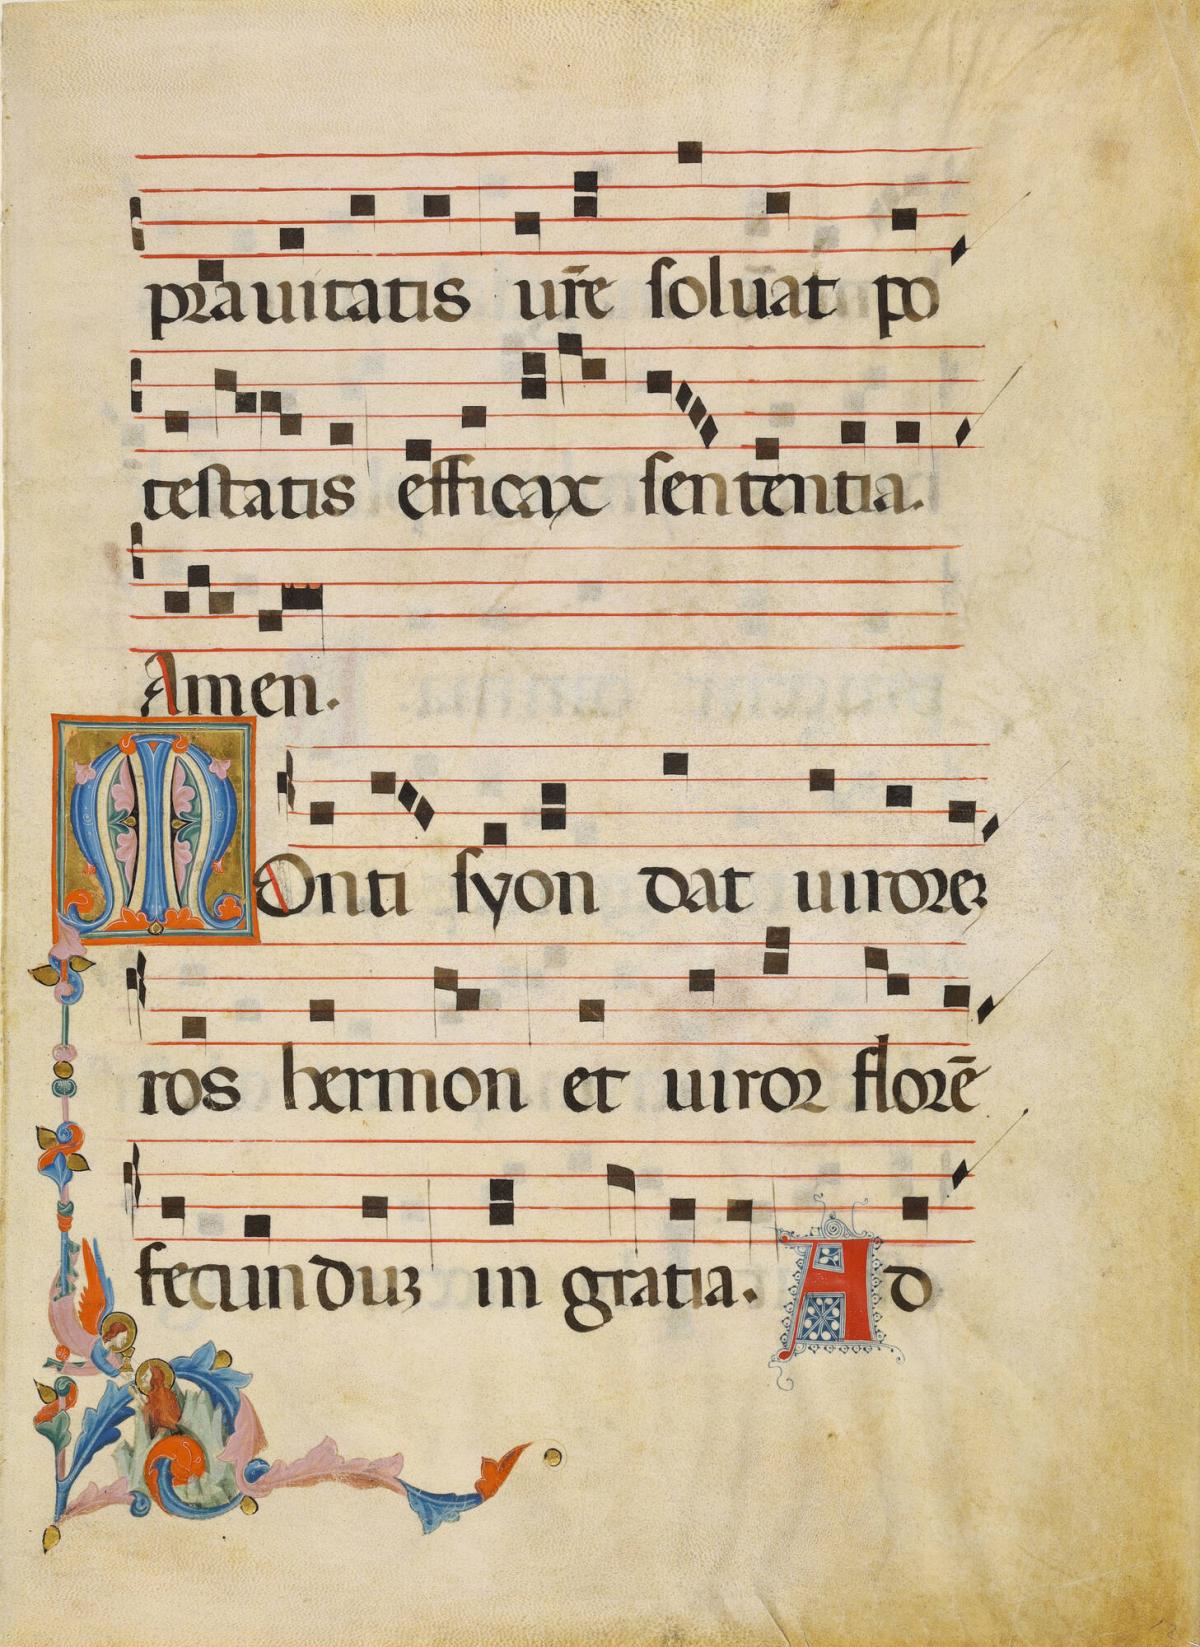 prauitatis ur̄e soluat po
testatis efficax sententia.
Amen.
MOnti syon dat uirorez
ros hermon et uiror florē
fecunduz in gratia. Ad